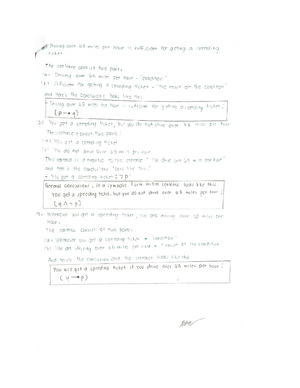 Driving over 65 miles per hour is sufficient for getting a speeding
ticket.
The sentence consist two parts,
Driving over 65 miles per hour - "condition"
Sufficient for getting a speeding ticket - "The result of the condition"
and here's the conclusions looks like this
Driving over 65 miles per hour is sufficient for getting a speeding ticket;
(p → q)
You get a speeding ticket, but you do not drive over 65 miles per hour
The sentence consist two parts:
You get a speeding ticket
You do not drive over 65 miles per hour
This sentence is a negative
and here's the conclusions looks like this:
You get a speeding ticket
General conclusion, in a symbolic form initial sentence looks like this
You get a speeding ticket, but you do not drive over 65 miles per hour;
(q ∧ ¬p)
Whenever you get a speeding ticket, you are driving over 65 miles per
hour.
The sentence consist of two parts:
Whenever you get a speeding ticket condition
You are driving over 65 miles per hour result of the condition
And here's the conclusion and the sentence looks like this
You will get a speeding ticket if you drive over 65 miles per hour;
(q → p)